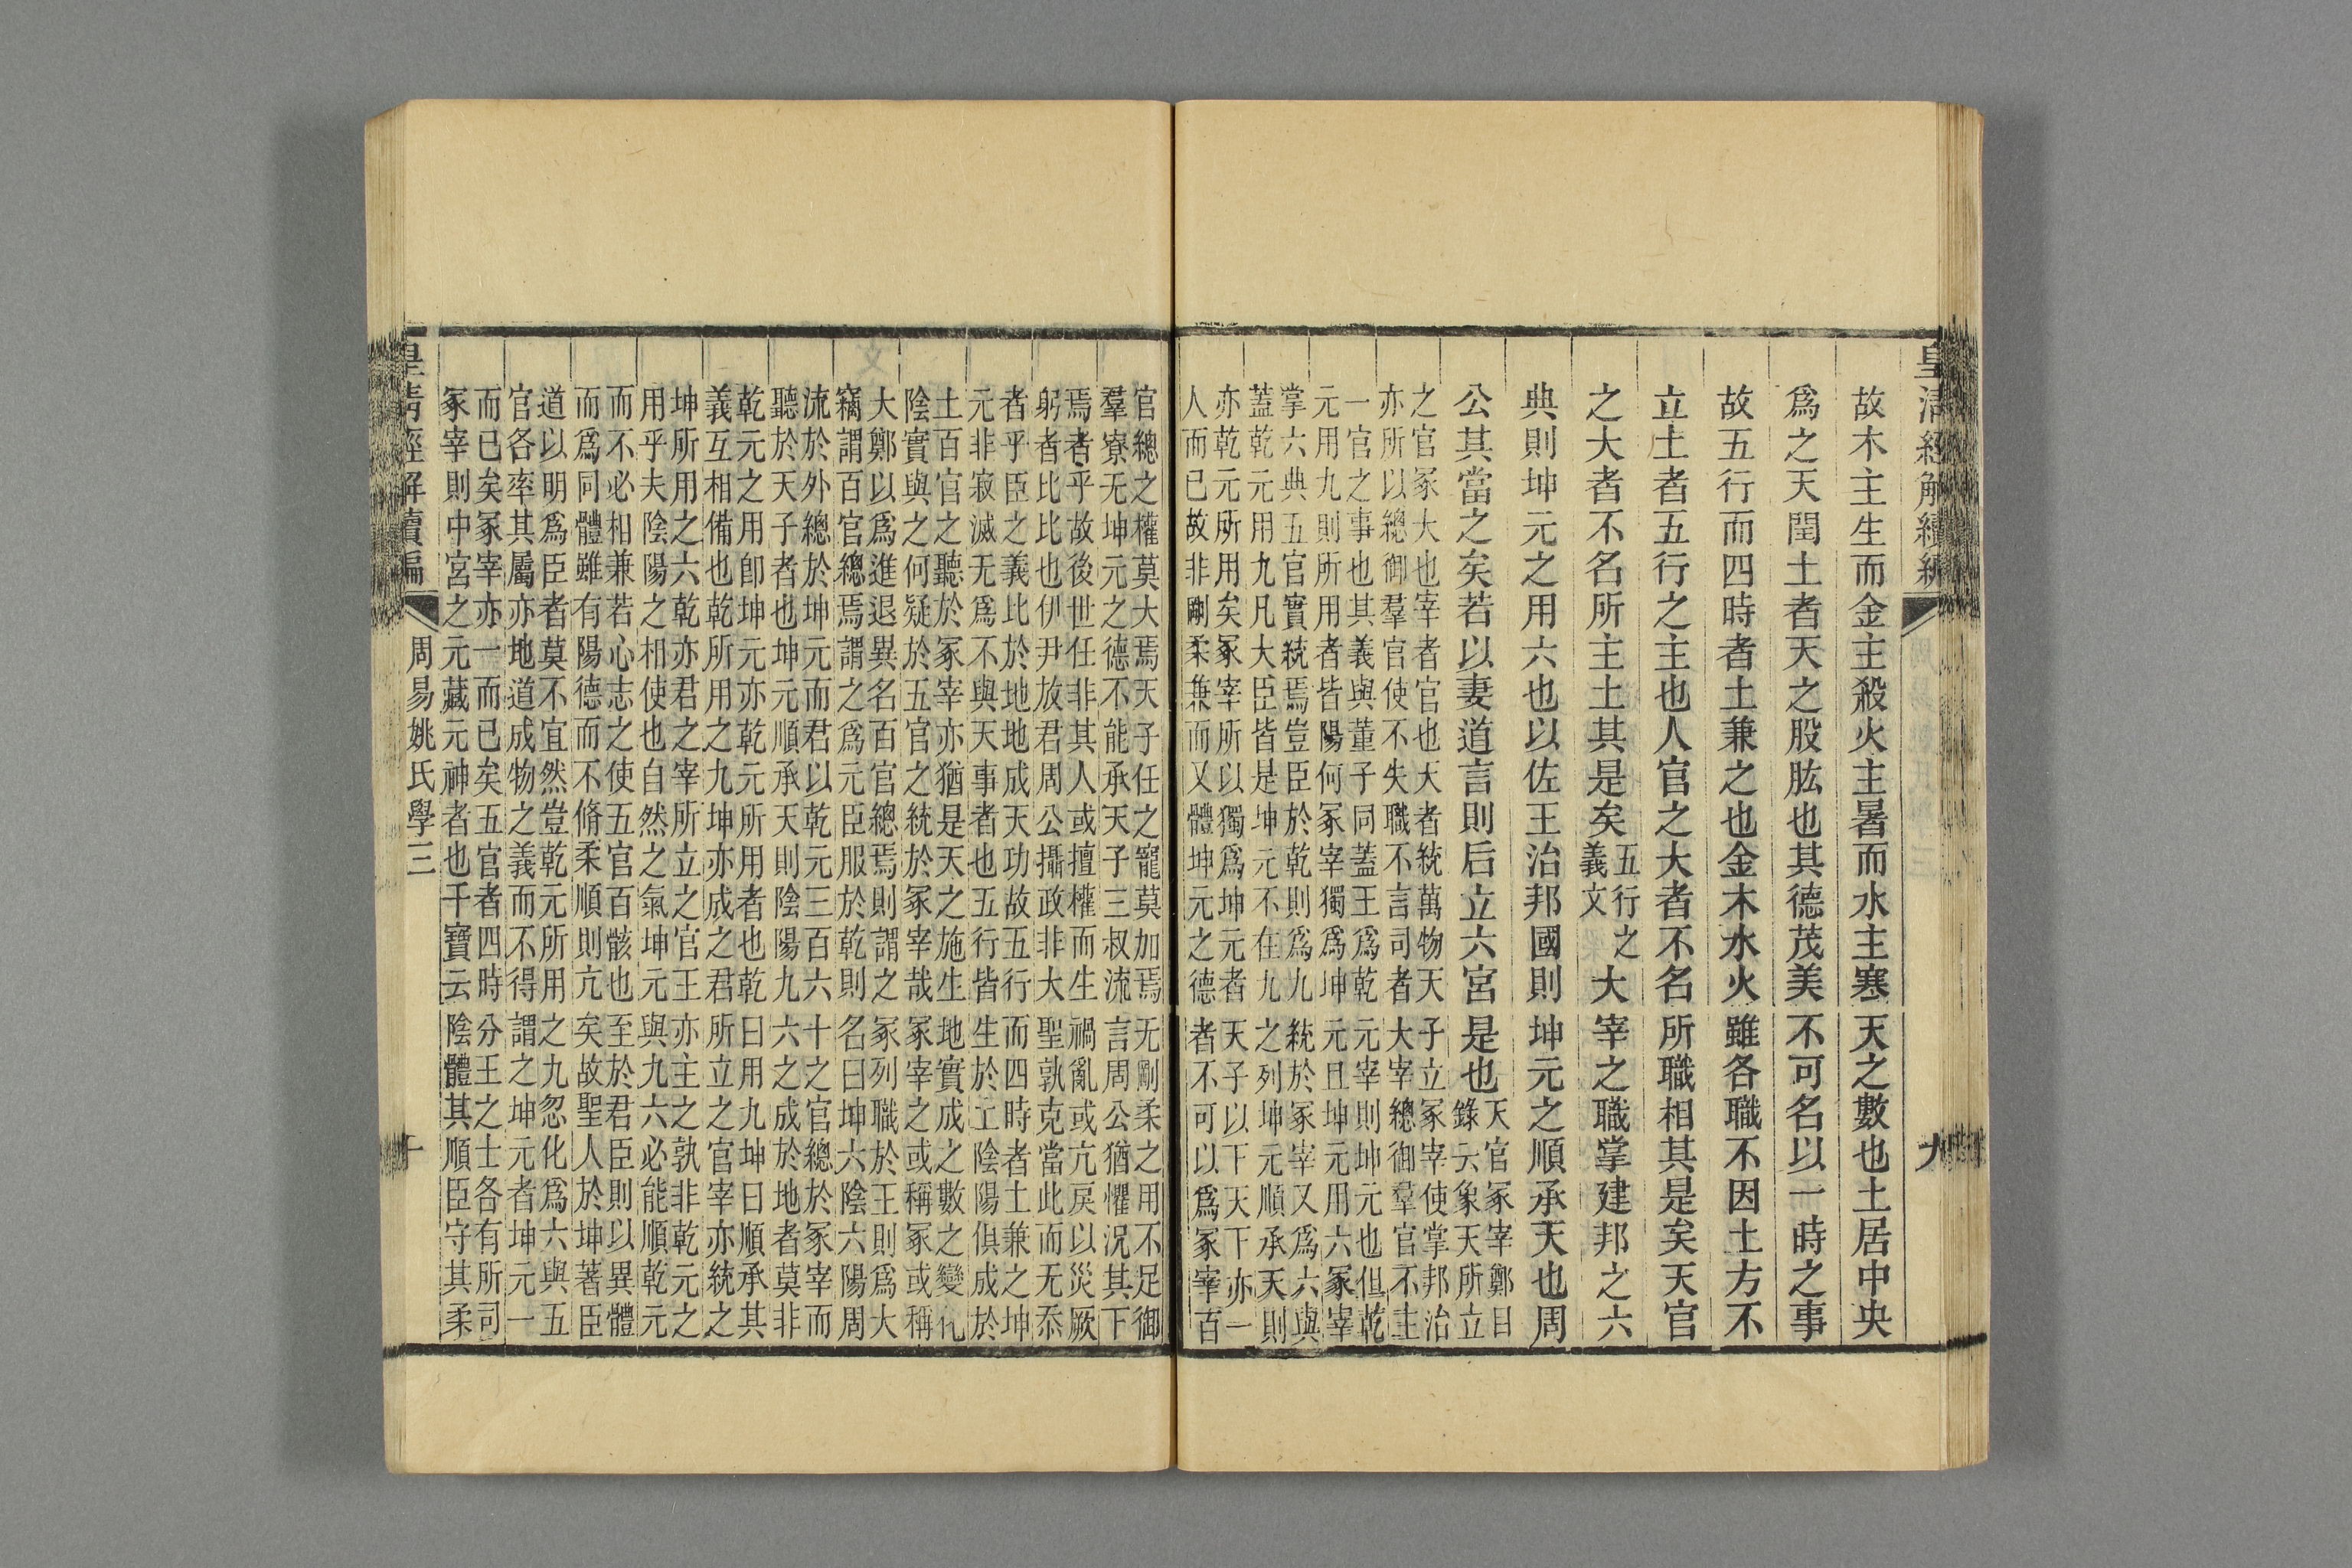 皇清經解續編
九
故木主生而金主殺火主暑而水主寒天之數也土居中央
爲之天閏土者天之股肱也其德茂美不可名以一時之事
故五行而四時者土兼之也金木水火雖各職不因土方不
立土者五行之主也人官之大者不名所職相其是矣天官
之大者不名所主土其是矣
五行之
義文
大宰之職掌建邦之六
典則坤元之用六也以佐王治邦國則坤元之順承天也周
公其當之矣若以妻道言則后立六宮是也
天官冢宰鄭目
錄云象天所立
之官冢大也宰者官也天者統萬物天子立冢宰使掌邦治
亦所以總御羣官使不失職不言司者大宰總御羣官不主
一官之事也其義與董子同蓋王爲乾元宰則坤元也但乾
元用九則所用者皆陽何冢宰獨爲坤元且坤元用六冢宰
掌六典五官實統焉豈臣於乾則爲九統於冢宰又爲六與
蓋乾元用九凡大臣皆是坤元不在九之列坤元順承天則
亦乾元所用矣冢宰所以獨爲坤元者天子以下天下亦一
人而已故非剛柔兼而又體坤元之德者不可以爲冢宰百
官總之權莫大焉天子任之寵莫加焉无剛柔之用不足御
羣寮无坤元之德不能承天子三叔流言周公猶懼況其下
焉者乎故後世任非其人或擅權而生禍亂或亢戾以災厥
躬者比比也伊尹放君周公攝政非大聖孰克當此而无忝
者乎臣之義比於地地成天功故五行而四時者土兼之坤
元非寂滅无爲不與天事者也五行皆生於土陰陽俱成於
土百官之聽於冢宰亦猶是天之施生地實成之數之變化
陰實與之何疑於五官之統於冢宰哉冢宰之或稱冢或稱
大鄭以爲進退異名百官總焉則謂之冢列職於王則爲大
竊謂百官總焉謂之爲元臣服於乾則名曰坤六陰六陽周
流於外總於坤元而君以乾元三百六十之官總於冢宰而
聽於天子者也坤元順承天則陰陽九六之成於地者莫非
乾元之用卽坤元亦乾元所用者也乾曰用九坤曰順承其
義互相備也乾所用之九坤亦成之君所立之官宰亦統之
坤所用之六乾亦君之宰所立之官王亦主之孰非乾元之
用乎夫陰陽之相使也自然之氣坤元與九六必能順乾元
而不必相兼若心志之使五官百骸也至於君臣則以異體
而爲同體雖有陽德而不脩柔順則亢矣故聖人於坤著臣
道以明爲臣者莫不宜然豈乾元所用之九忽化爲六與五
官各率其屬亦地道成物之義而不得謂之坤元者坤元一
而已矣冢宰亦一而已矣五官者四時分王之士各有所司
冢宰則中宮之元藏元神者也千寶云陰體其順臣守其柔
皇清經解續編
周易姚氏學三
十